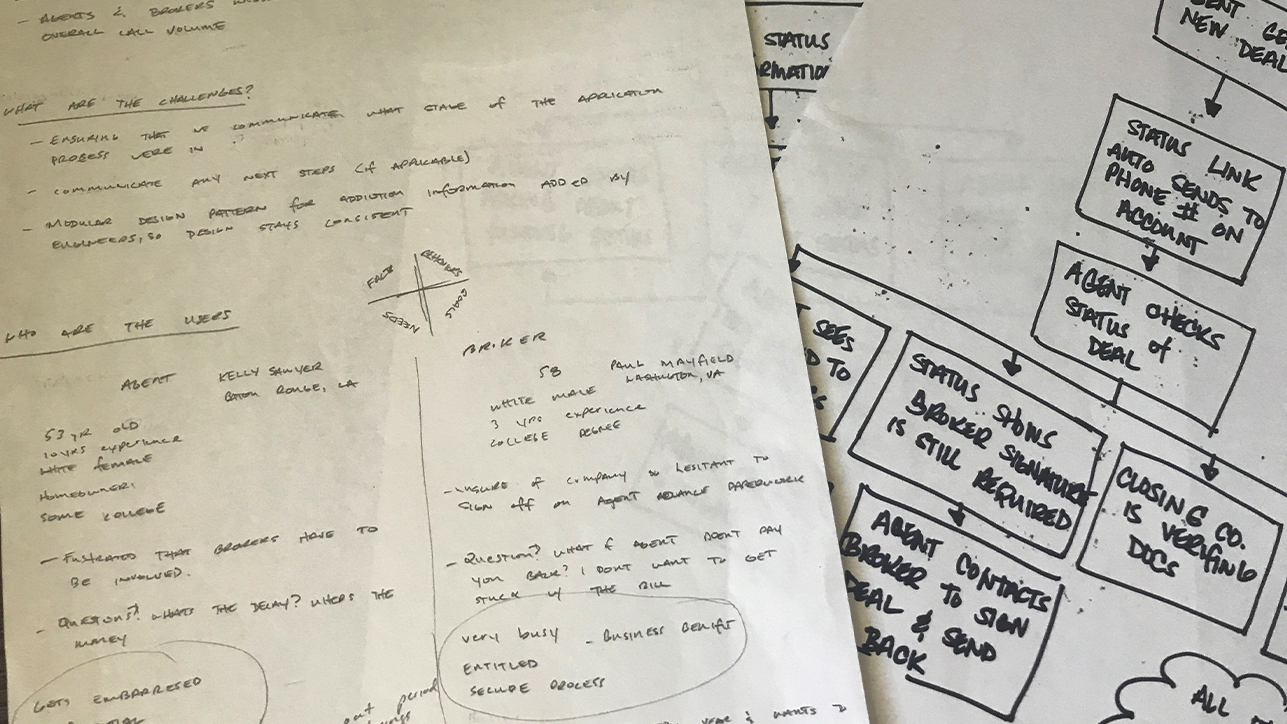 - AGENTS & BROKERS
OVERALL CALL VOLUME
WHAT ARE THE CHALLENGES?
- ENSURING THAT WE COMMUNICATE WHAT STAGE OF THE APPLICATION
PROCESS WERE IN
- COMMUNICATE ANY NEXT STEPS (IF APPLICABLE)
- MODULAR DESIGN PATTERN FOR ADDICTION INFORMATION ADDED BY
ENGINEERS, SO DESIGN STAYS CONSISTENT
FACTS
BEHAVIORS
NEEDS
GOALS
WHO ARE THE USERS
AGENT KELLY SAWYER
BATON ROUGE, LA
53 YR OLD
10 YRS EXPERIENCE
WHITE FEMALE
HOMEOWNER
SOME COLLEGE
- FUSTRATED THAT BROKERS HAVE TO
BE INVOLVED.
- QUESTIONS? WHATS THE DELAY? WHERS THE
MONEY
GETS EMBARRESED
BROKER
58 PAUL MAYFIELD
WASHINGTON, VA
WHITE MALE
3 YRS EXPERIENCE
COLLEGE DEGREE
- UNSURE OF COMPANY SO HESITANT TO
SIGN OFF ON AGENT ADVANCE PAPERWORK
- QUESTION? WHAT IF AGENT DOENT PAY
YOU BACK? I DONT WANT TO GET
STUCK W/ THE BILL
VERY BUSY - BUSINESS BENIFIT
ENTITLED
SECURE PROCESS
PERIOD
YEAR & WANTS 2
STATUS
NEW DEAL
STATUS LINK
AUTO SENDS TO
PHONE # ON
ACCOUNT
AGENT CHECKS
STATUS OF
DEAL
SEES
TO
STATUS SHOWS
BROKER SIGNATURE
IS STILL REQUIRED
CLOSING CO.
IS VERIFING
DOCS
AGENT CONTACTS
BROKER TO SIGN
DEAL & SEND
BACK
ALL